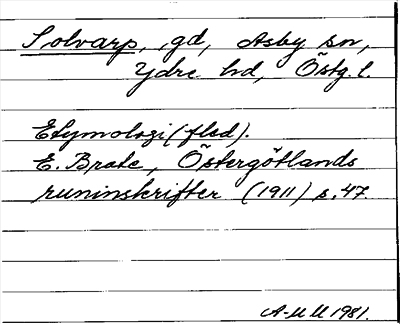 Solvarp, gd, Asby sn,
Ydre hd, Östg. l.
Etymologi (fled).
E. Brate, Östergötlands
runinskrifter (1911) s. 47.
A-M U 1981.